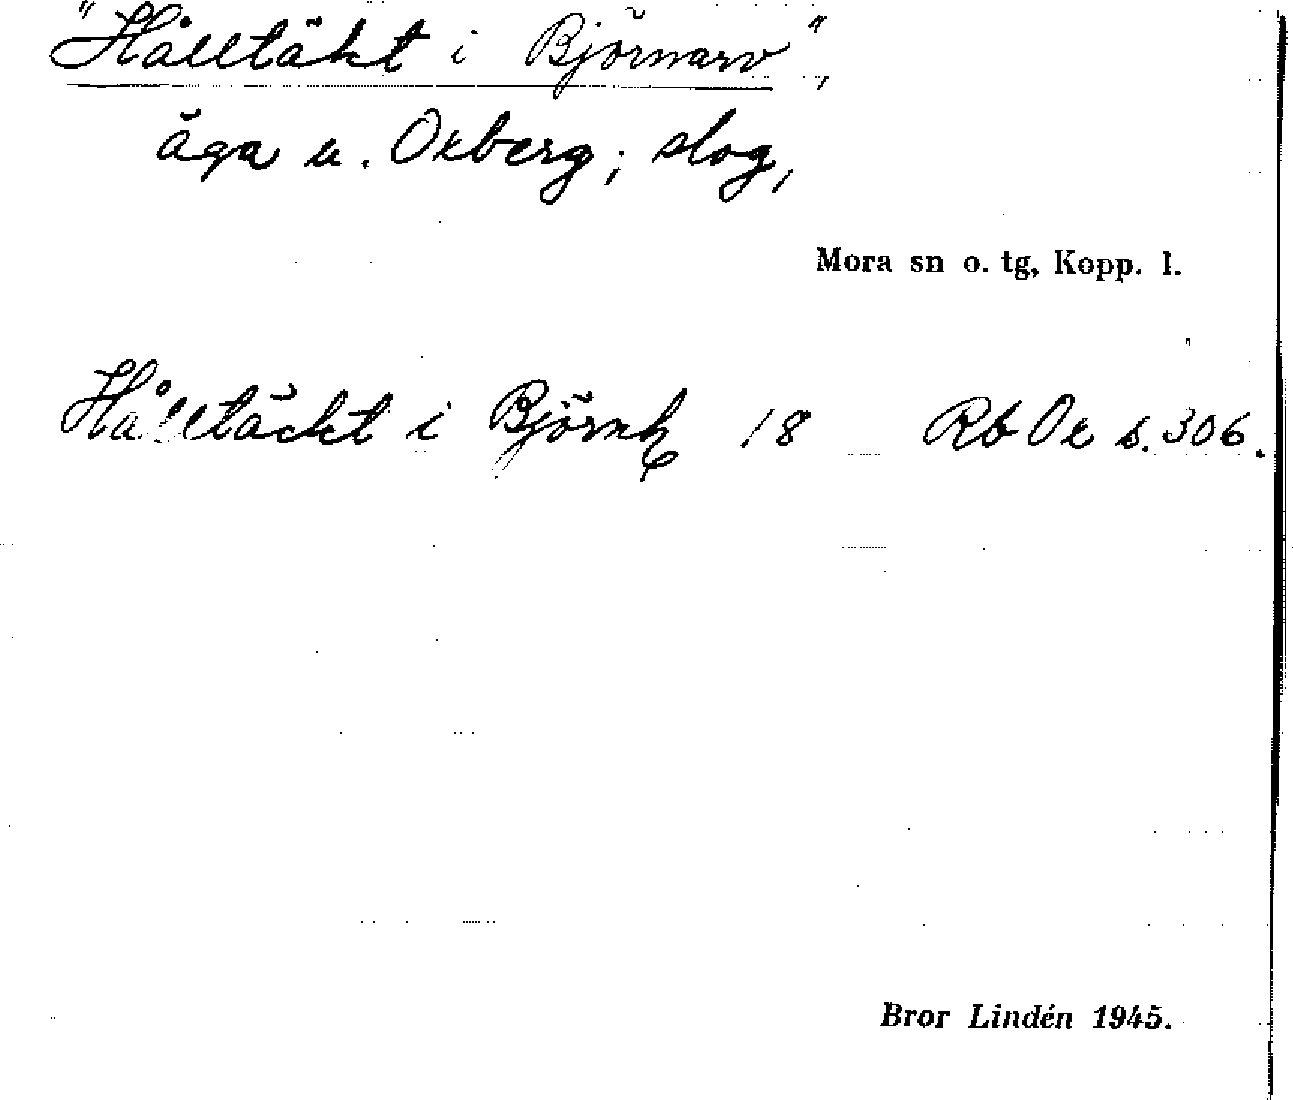 "Hålltäkt i Björnarv",
äga u. Oxberg; slog,
Mora sn o. tg, Kopp. l.
Hålltäckt i Björnh 18 Rb Ox s. 306.
Bror Lindén 1945.